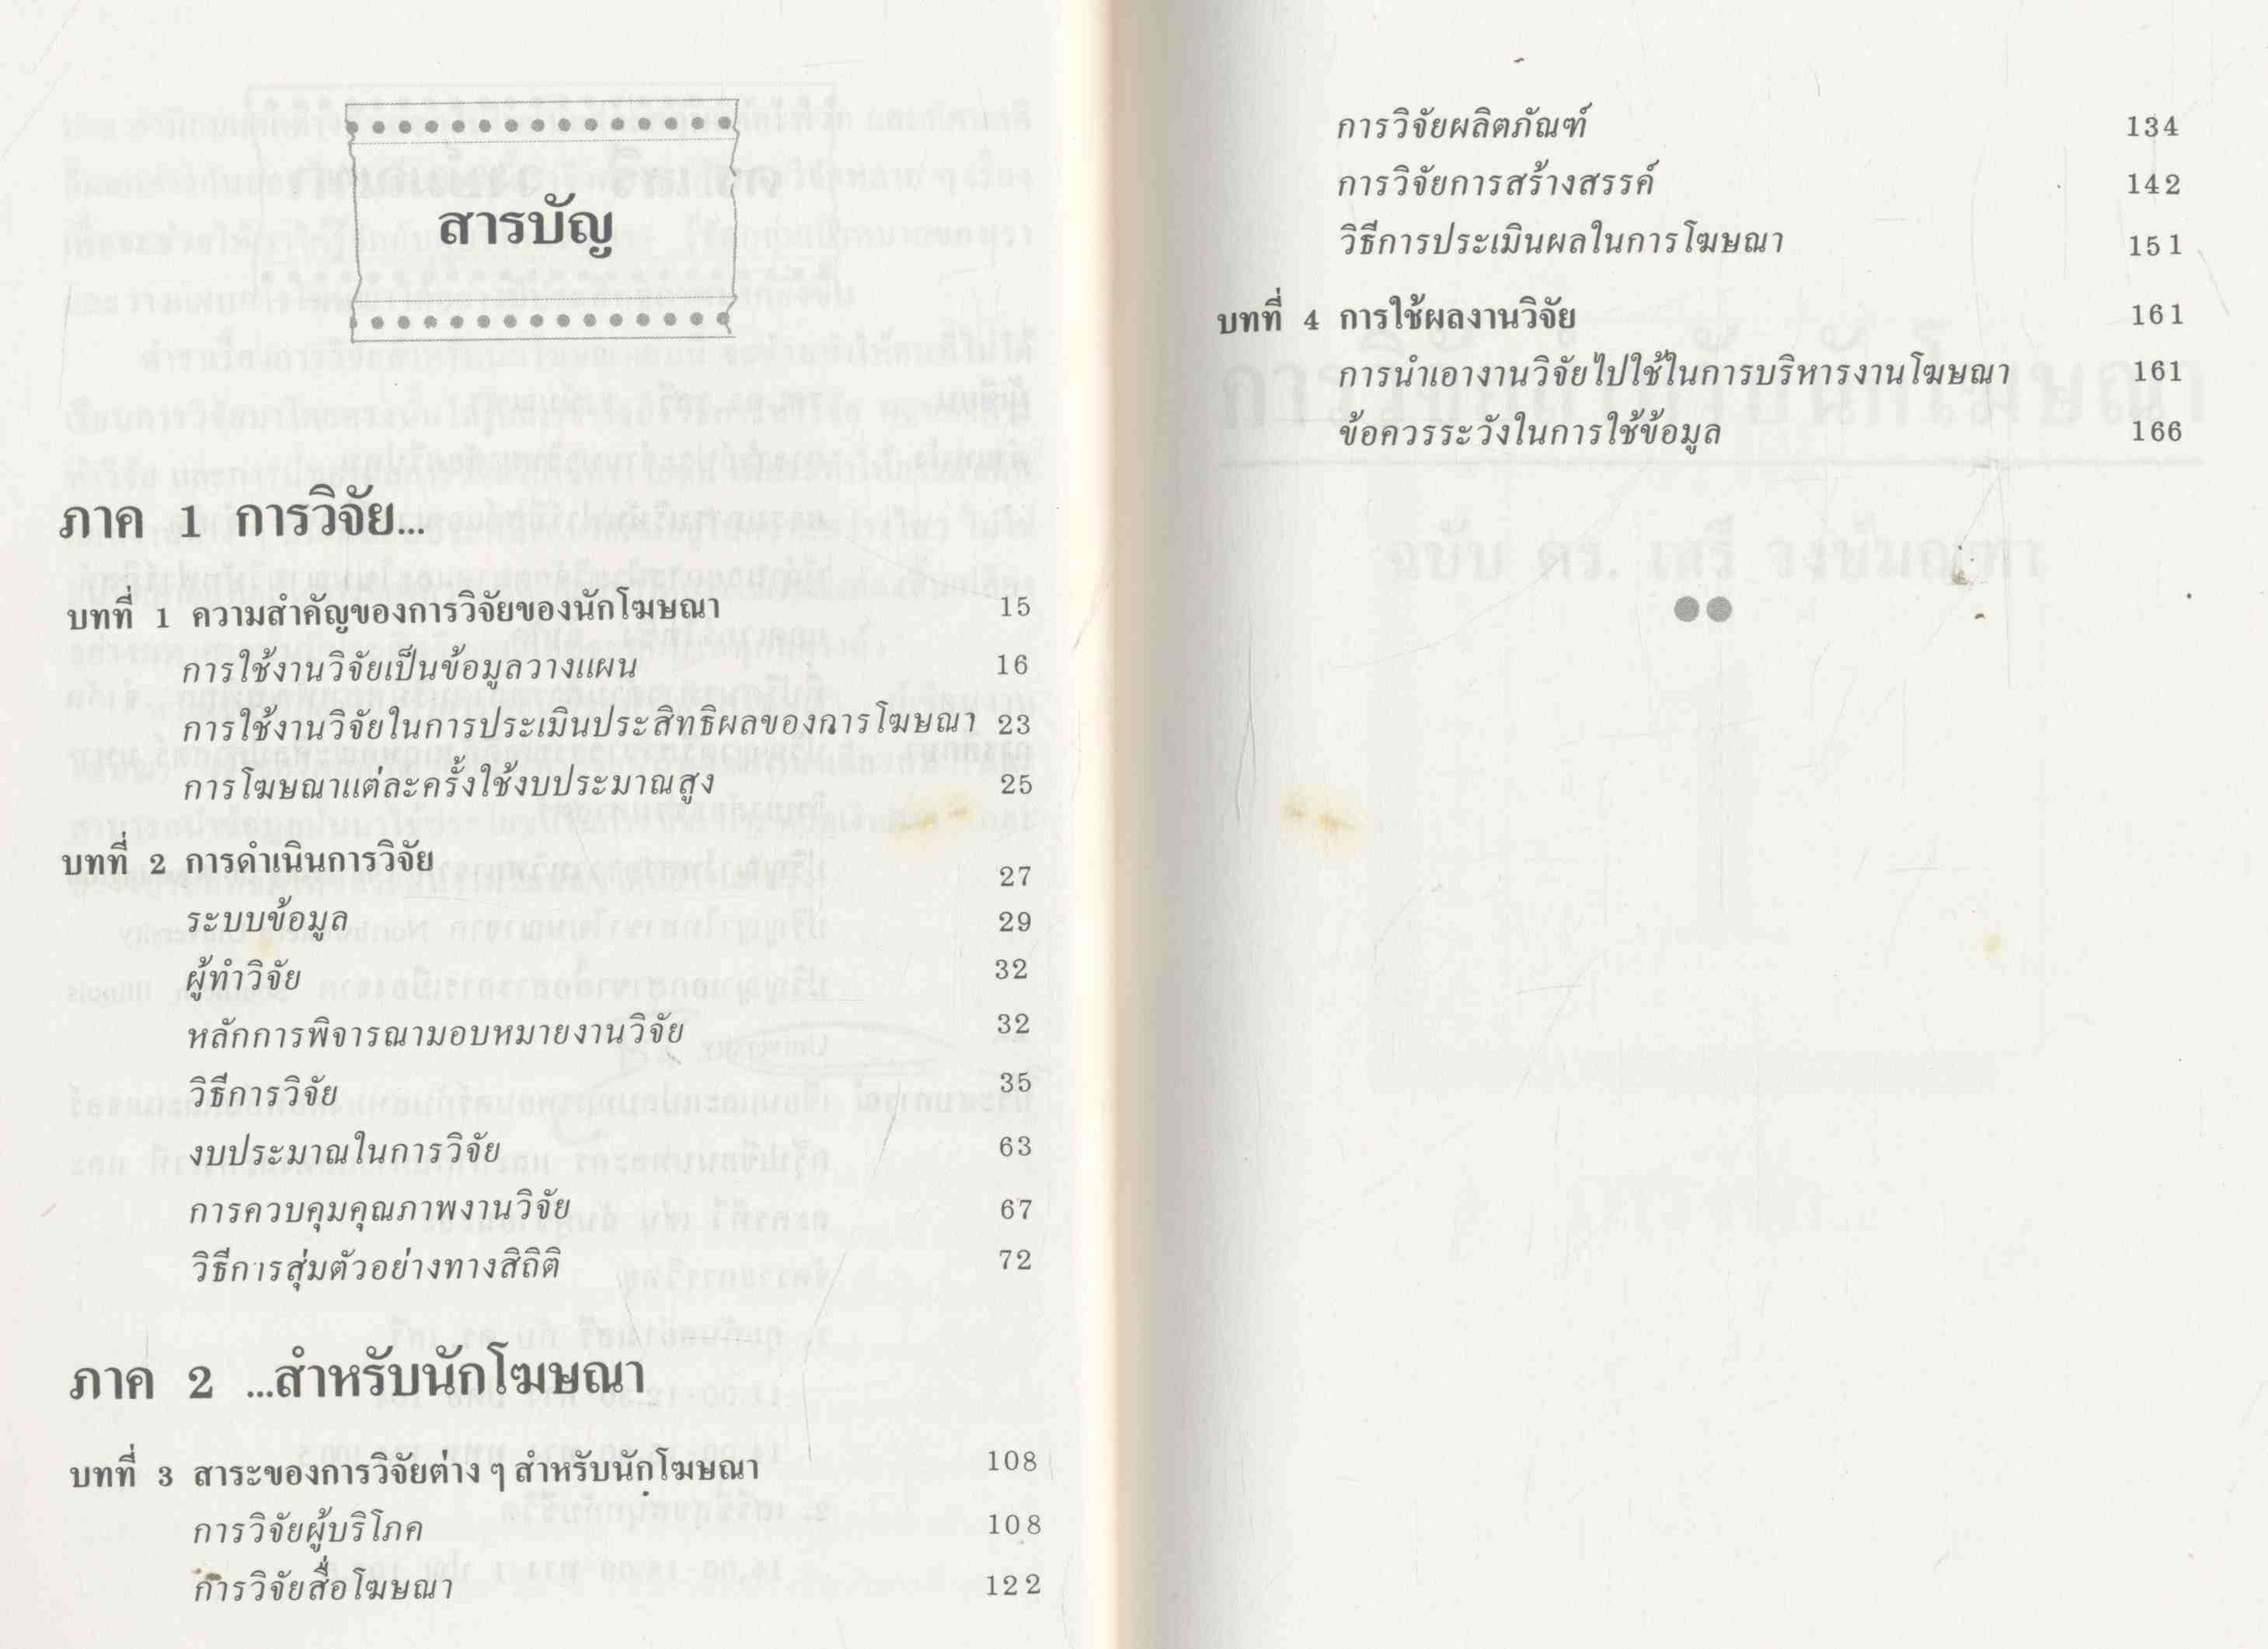 สารบัญ
ภาค 1 การวิจัย...
บทที่ 1 ความสำคัญของการวิจัยของนักโฆษณา 15
การใช้งานวิจัยเป็นข้อมูลวางแผน 16
การใช้งานวิจัยในการประเมินประสิทธิผลของการโฆษณา 23
การโฆษณาแต่ละครั้งใช้งบประมาณสูง 25
บทที่ 2 การดำเนินการวิจัย 27
ระบบข้อมูล 29
ผู้ทำวิจัย 32
หลักการพิจารณามอบหมายงานวิจัย 32
วิธีการวิจัย 35
งบประมาณในการวิจัย 63
การควบคุมคุณภาพงานวิจัย 67
วิธีการสุ่มตัวอย่างทางสิถิติ 72
ภาค 2 ...สำหรับนักโฆษณา
บทที่ 3 สาระของการวิจัยต่าง ๆ สำหรับนักโฆษณา 108
การวิจัยผู้บริโภค 108
การวิจัยสื่อโฆษณา 122
การวิจัยผลิตภัณฑ์ 134
การวิจัยการสร้างสรรค์ 142
วิธีการประเมินผลในการโฆษณา 151
บทที่ 4 การใช้ผลงานวิจัย 161
การนำเอางานวิจัยไปใช้ในการบริหารงานโฆษณา 161
ข้อควรระวังในการใช้ข้อมูล 166